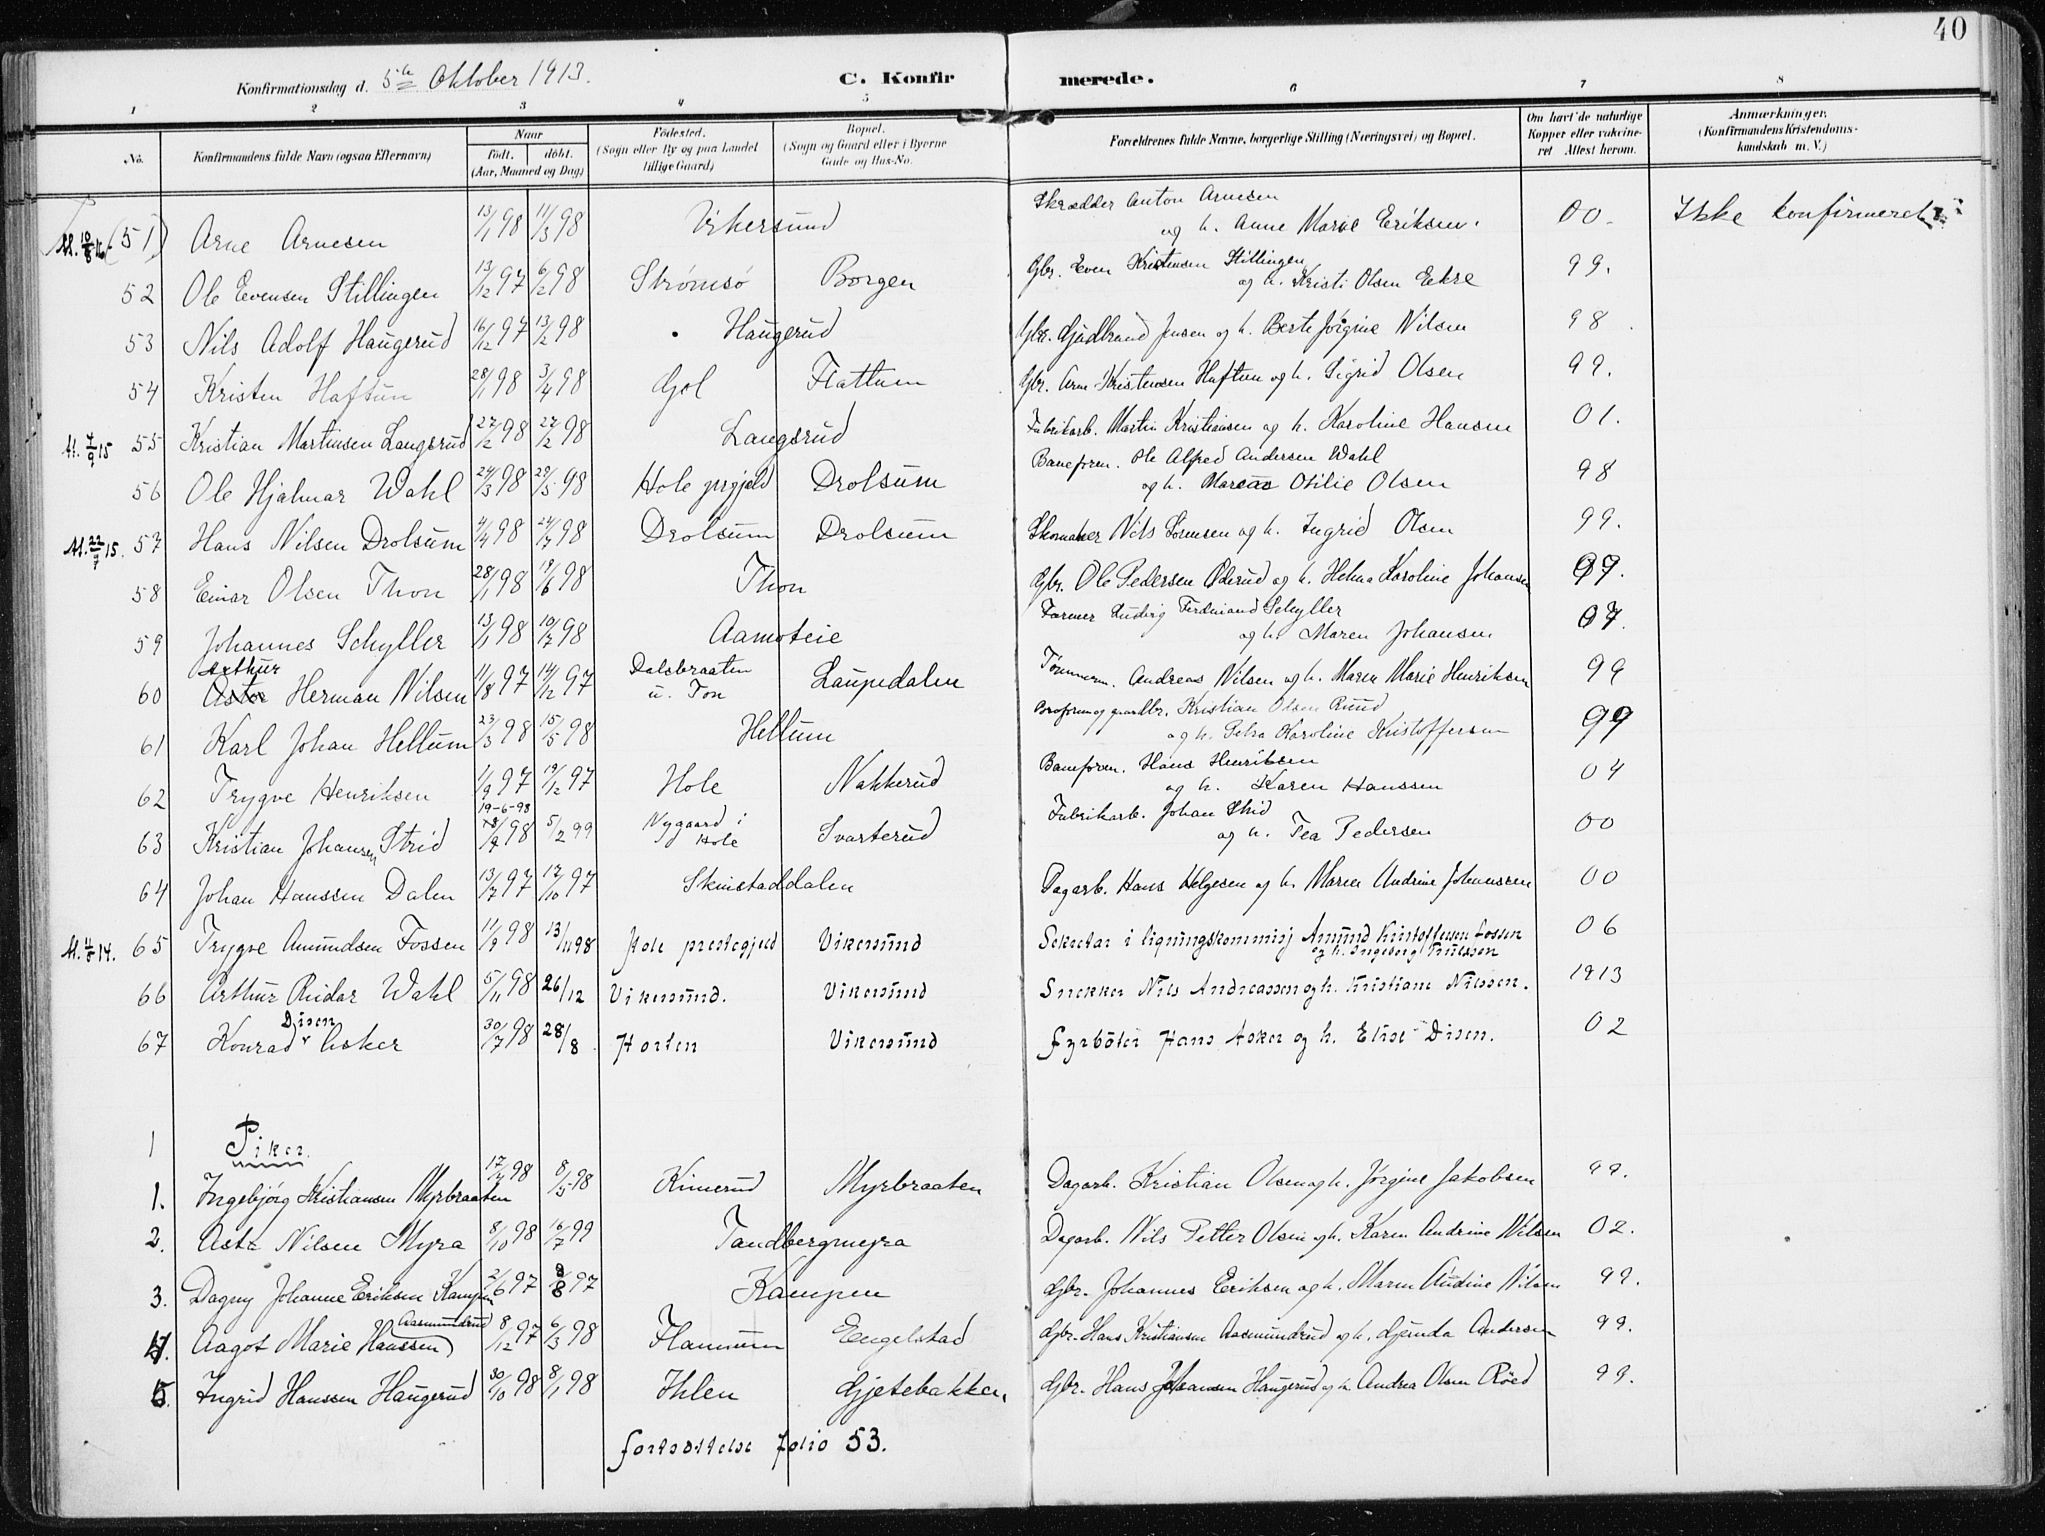 40
Konfirmationsdag d. 5te Oktober 1913. C. Konfirmerede.
1 2 3 4 5 6 7 8
No. Konfirmandens fulde Navn (ogsaa Efternavn) Naar født. døbt. (Aar, Maaned og Dag) Fødested. (Sogn eller By og paa Landet tillige Gaard) Bopæl. (Sogn og Gaard eller i Byerne Gade og Hus-No. Forældrenes fulde Navne, borgerlige Stilling (Næringsvei) og Bopæl. Om havt de naturlige Kopper eller vakcineret Attest herom. Anmærkninger. (Konfirmandens Kristendomskundskab m. V.)
At. 10/8 16 (51) Arne Arnesen 13/1 98 11/3 98 Vikersund Skrædder Anton Arnesen og h. Anne Marie Eriksen. 00. Ikke konfirmeret
52 Ole Evensen Stillingen 13/12 97 6/2 98 Strømsø Borgen Gbr. Even Kristensen Stillingen og h. Kristi Olsen Eekre 99.
53 Nils Adolf Haugerud 16/12 97 13/2 98 Haugerud Gbr. Gudbrand Jensen og h. Berte Jørgine Nilsen 98
54 Kristen Haftun 28/1 98 3/4 98 Gol Flattum Gbr. Arne Kristensen Haftun og h. Sigrid Olsen 99.
At. 7/9 15 55 Kristian Martinsen Langsrud 27/2 98 27/2 98 Langsrud Fabrikarb. Martin Kristiansen og h. Karoline Hansen 01.
56 Ole Hjalmar Wahl 24/3 98 29/5 98 Hole prgjeld Drolsum Baneform. Ole Alfred Andersen Wahl og h. Otilie Olsen 98
At. 22/7 15. 57 Hans Nilsen Drolsum 4/4 98 24/7 98 Drolsum Drolsum Skomaker Nils Sørensen og h. Ingrid Olsen 99.
58 Einar Olsen Thon 28/1 98 19/6 98 Thon Gbr. Ole Pedersen Øderud og h. Helene Karoline Johansen 99.
59 Johannes Schyller 13/1 98 10/7 98 Aamoteie Farmer Ludvig Ferdinand Schyller og h. Maren Johansen. 07.
60 Arthur Herman Nilsen 11/8 97 14/12 97 Dalsbraaten u. Ton Laupedalen Tømmerm. Andreas Nilsen og h. Maren Marie Henriksen 99
61 Karl Johan Hellum 23/3 98 15/5 98 Hellum Broform og gaardbr. Kristian Olsen Ruud og h. Petra Karoline Kristoffersen 99
62 Trygve Henriksen 1/9 97 19/12 97 Hole Nakkerud Baneform. Hans Henriksen og h. Karen Hanssen 04
63 Kristian Johansen Strid 19-6-98 98 5/2 99 Nygaard i Hole Svarterud Fabrikarb. Johan Strid og h. Tea Pedersen 00
64 Johan Hanssen Dalen 13/7 97 17/10 97 Skinstaddalen Dagarb. Hans Helgesen og h. Maren Andrine Johanssen 00
At. 11/8 14. 65 Trygve Amundsen Fossen 11/9 98 13/11 98 Hole prestegjeld Vikersund Sekretær i ligningskommisj Amund Kristoffersen Fossen og h. Ingeborg Knutssen 06
66 Arthur Reidar Wahl 5/11 98 26/12 Vikersund. Vikersund Snekker Nils Andreassen og h. Kristiane Nilssen. 1913
67 Konrad Disen Asker 30/7 98 28/8 Horten Vikersund Fyrbøter Hans Asker og h. Elise Disen. 02
1 Piker.
1. Ingebjørg Kristiansen Myrbraaten 17/4 98 8/5 98 Kimerud Myrbraaten Dagarb. Kristian Olsen og h. Jørgine Jakobsen 99.
2. Asta Nilsen Myra 8/10 98 16/7 99 Tandbergmyra Dagarb. Nils Petter Olsen og h. Karen Andrine Nilsen 02.
3. Dagny Johanne Eriksen Kampen 2/6 97 8/8 97 Kampen Gbr. Johannes Eriksen og h. Maren Andine Nilsen 99.
4. Aagot Marie Hanssen Aasmundrud 8/12 97 6/3 98 Flannum Engelstad Gbr. Hans Kristiansen Aasmundrud og h. Gunda Andersen 99.
5. Ingrid Hanssen Haugerud 30/10 98 8/1 98 Ihlen Gjetebakken, Gbr. Hans Johansen Haugerud og h. Andrea Olsen Røed 99.
fortsættelse folio 53.